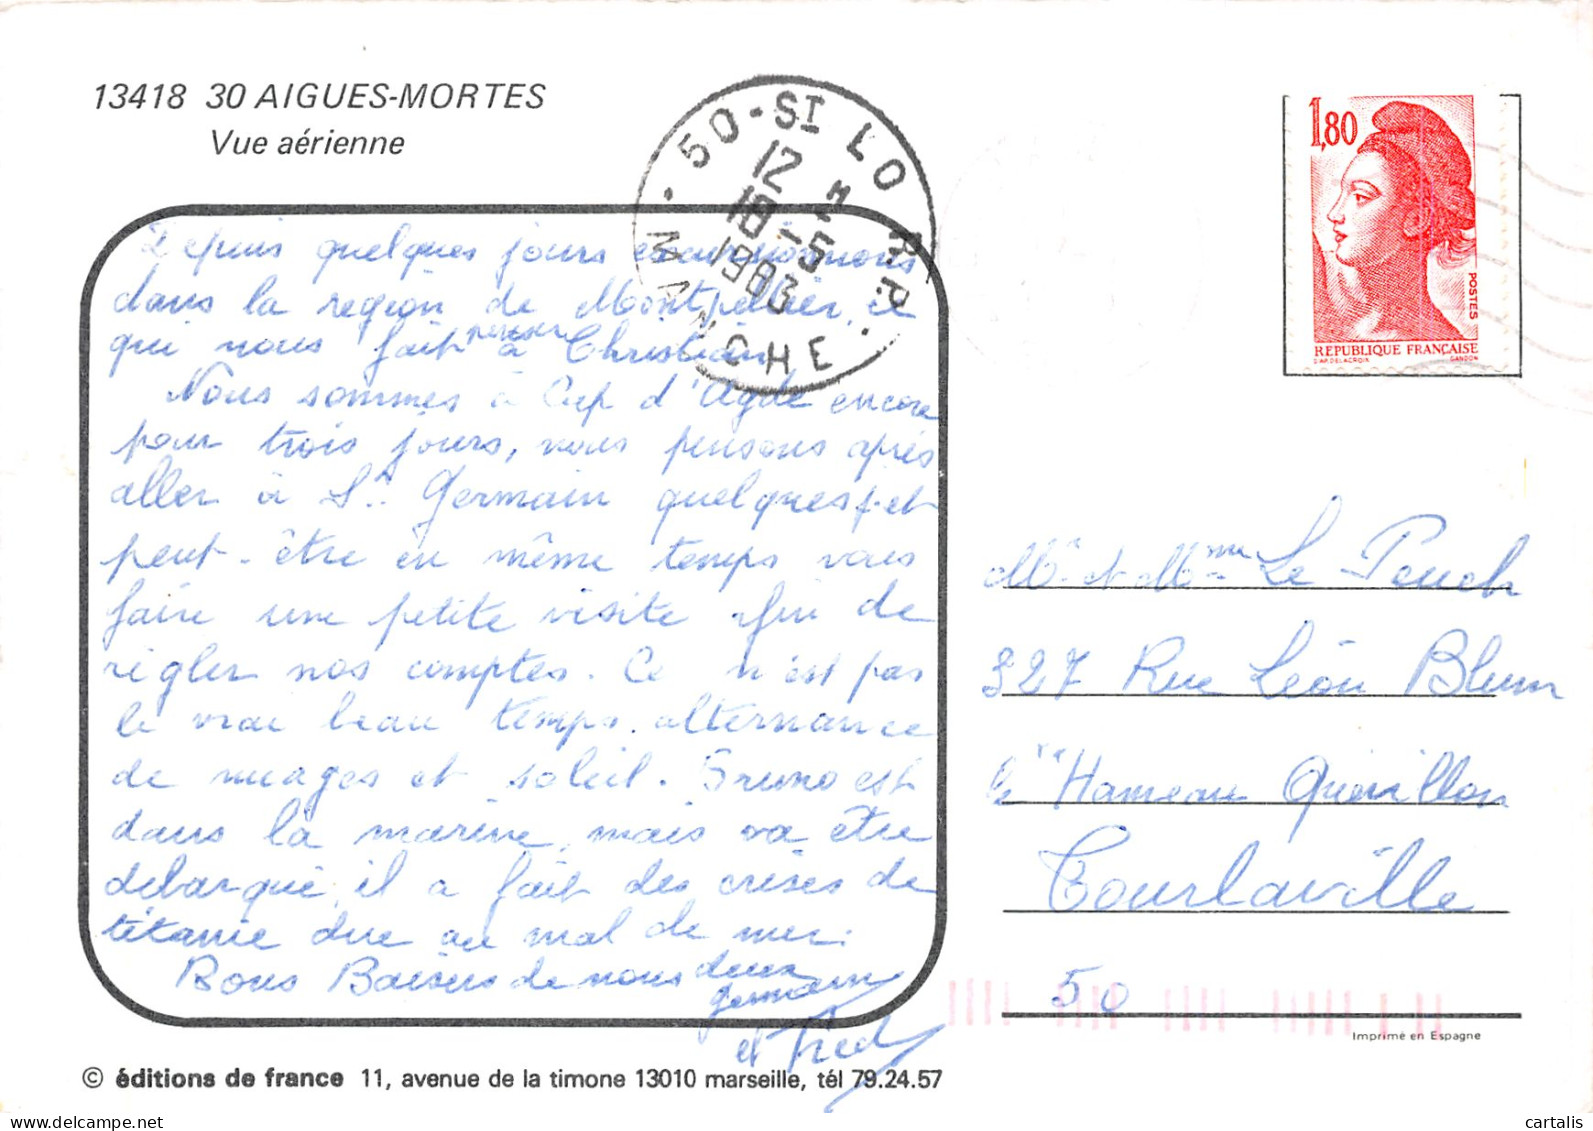 13418 30 AIGUES-MORTES
Vue aérienne
50 - ST LO R.P.
MANCHE
12 H
18-5
1983
1,80
POSTES
REPUBLIQUE FRANÇAISE
D'AP. DELACROIX GANDON
Depuis quelques jours excursionnons
dans la region de Montpellier, ce
qui nous fait penser à Christian
Nous sommes à Cap d'Agde encore
pour trois jours, nous pensons après
aller à St Germain quelques j. et
peut-être en même temps vous
faire une petite visite afin de
régler nos comptes. Ce n'est pas
le vrai beau temps. alternance
de nuages et soleil. Bruno est
dans la marine, mais va être
debarqué, il a fait des crises de
tétanie due au mal de mer.
Bons Baisers de nous deux
Germain
et Fred
Mr et Mme Le Pouch
327 Rue Léon Blum
le Hameau Quévillon
Tourlaville
50
Imprimé en Espagne
© éditions de france 11, avenue de la timone 13010 marseille, tél 79.24.57
cartalis